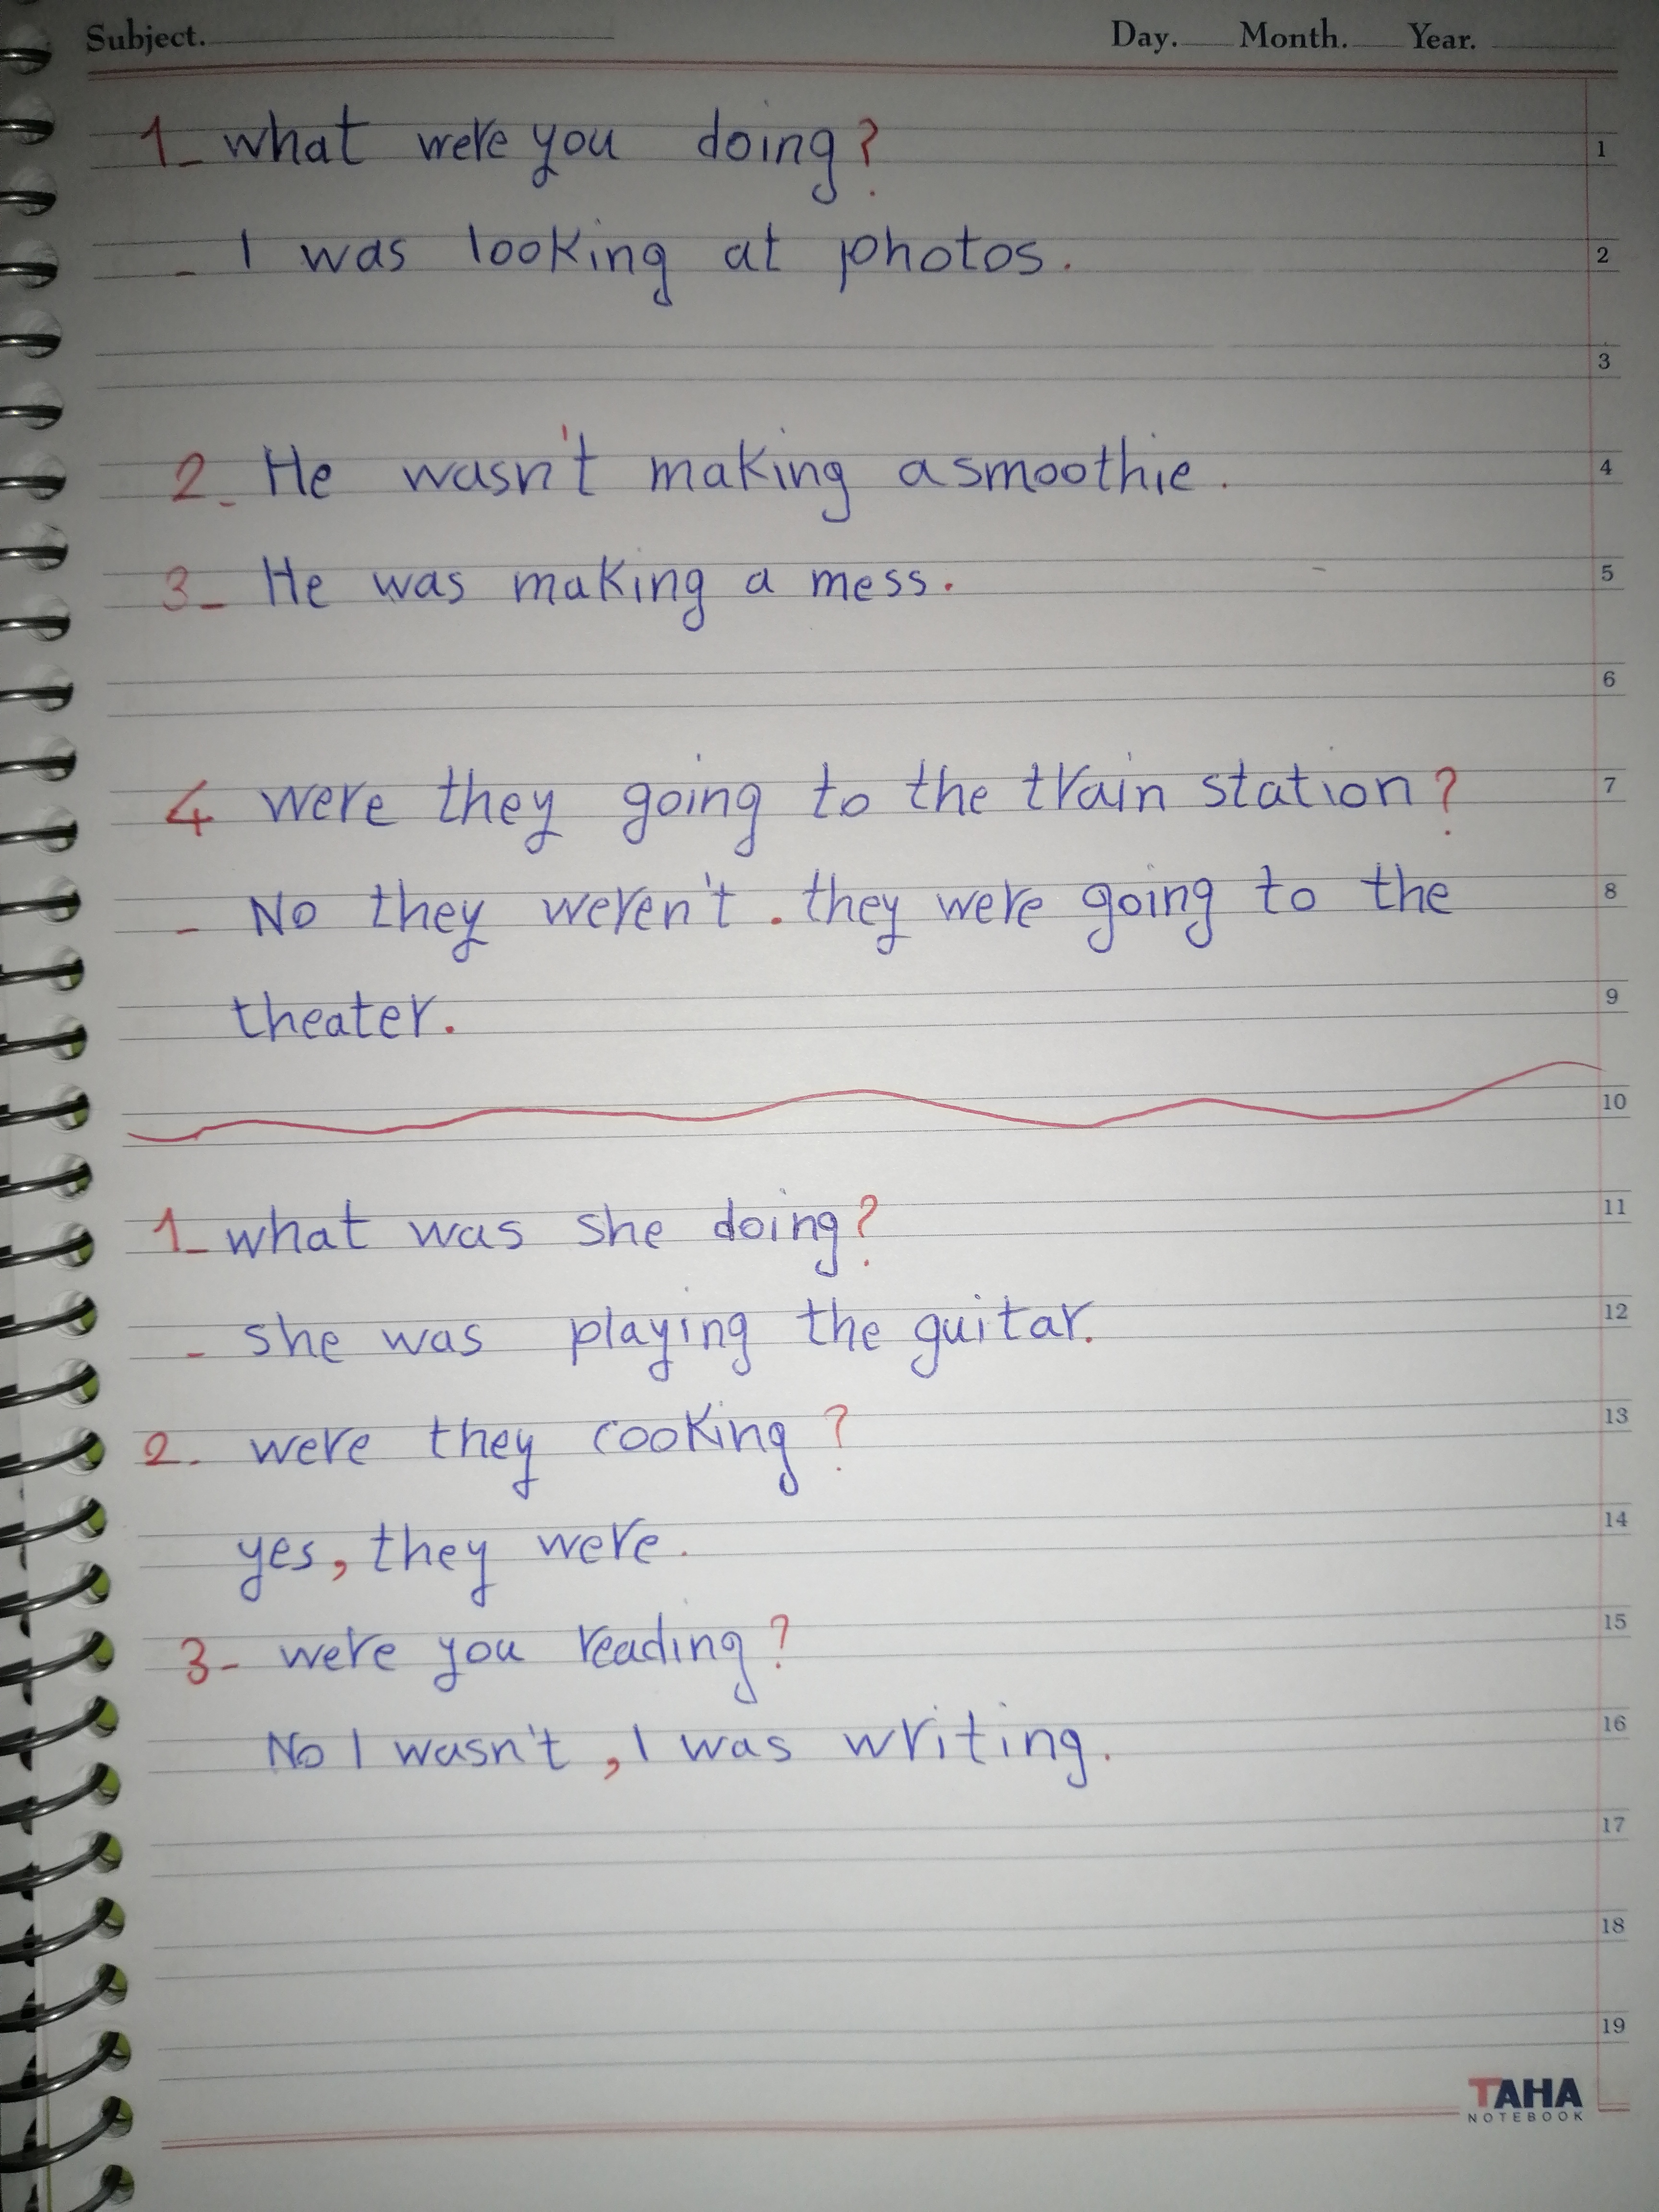 Subject. Day. Month. Year.
1_ what were you doing?
1
_ I was looking at photos.
2
3
2_ He wasn't making a smoothie.
4
3_ He was making a mess.
5
6
4 were they going to the train station?
7
_ No they weren't. they were going to the
8
theater.
9
10
1_ what was she doing?
11
_ she was playing the guitar.
12
2. were they cooking?
13
yes, they were.
14
3- were you reading?
15
No I wasn't, I was writing.
16
17
18
19
TAHA
NOTEBOOK